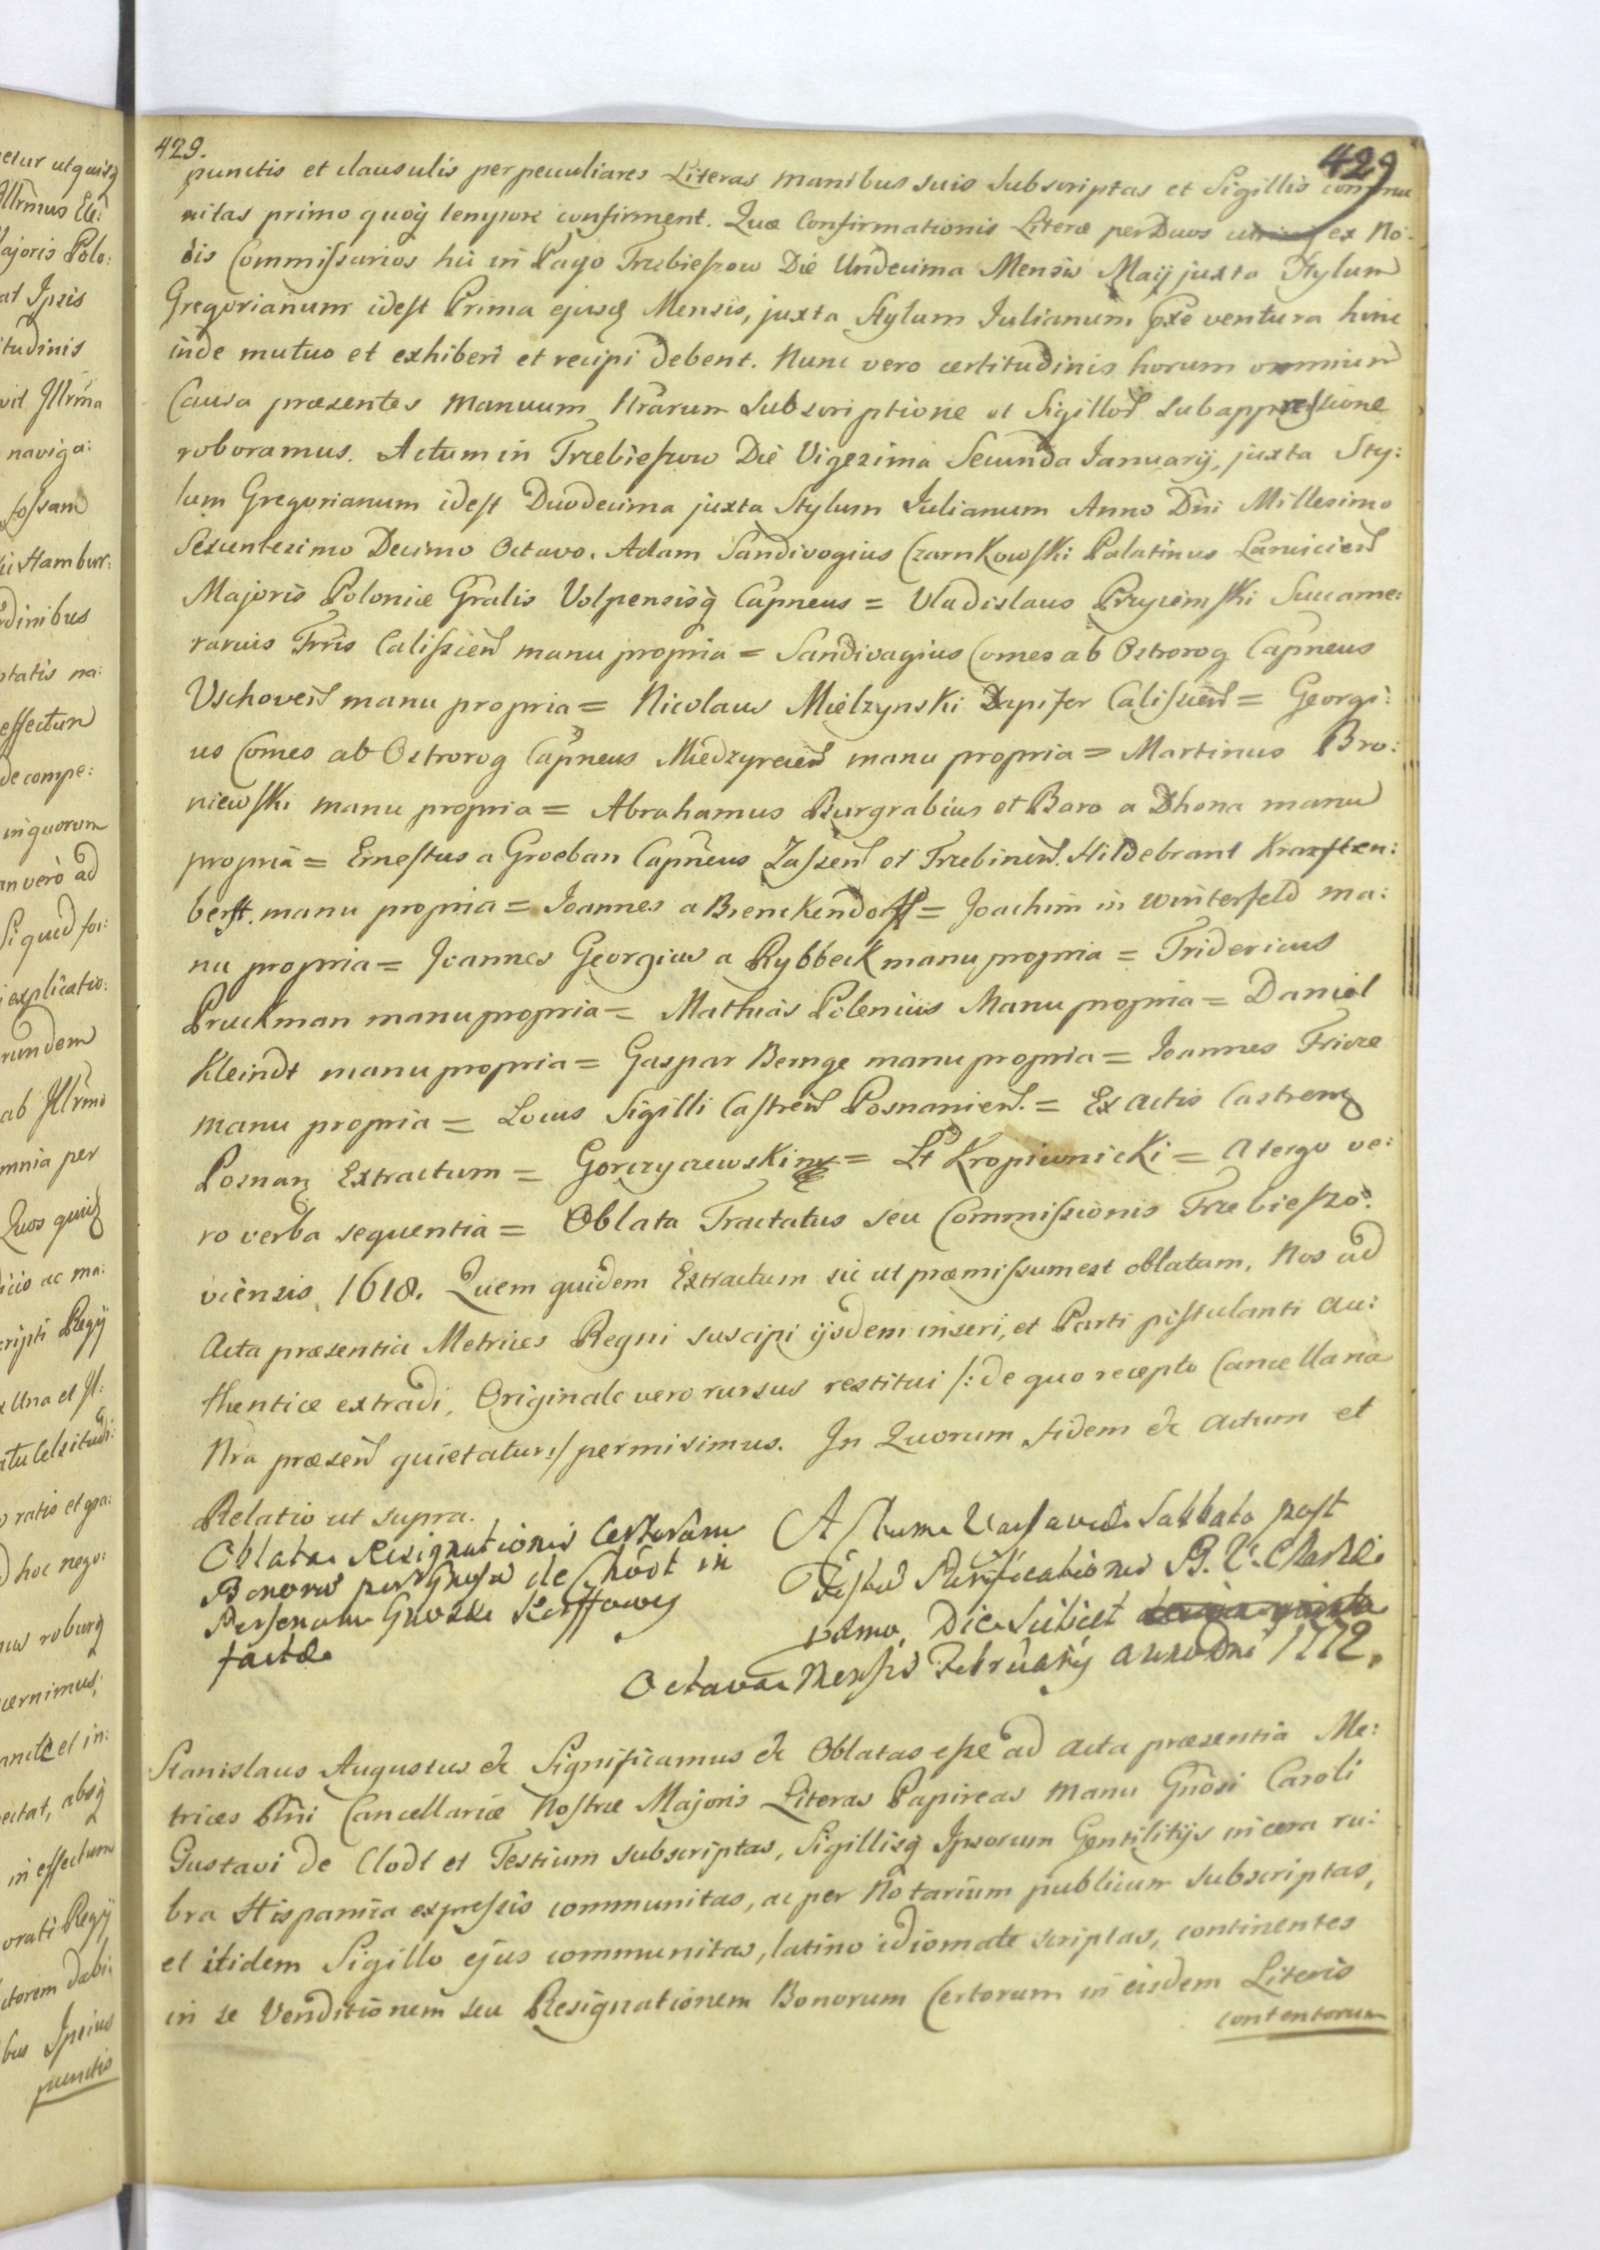 429.
429
punctis et clausulis per peculiares Literas manibus suis subscriptas et Sigillis commu
nitas primo quoq̃ tempore confirment. Quæ Confirmationis Literæ per Duos ex No:
bis Commissarios hic in Pago Trzebieszow Die Undecima Mensis Maij juxta Stylum
Gregorianum idest Prima ejusq̃ Mensis, juxta Stylum Julianum p̃xe ventura hinc
inde mutuo et exhiberi et recipi debent. Nunc vero certitudinis horum omnium
Causa præsentes manuum Nr̃arum Subscriptione et Sigillor̃ subappressione
roboramus. Actum in Trzebieszow Die Vigezima Secunda Januarij, juxta Sty:
lum Gregorianum idest Duodecima juxta Stylum Julianum Anno Dñi Millesimo
Sexcentesimo Decimo Octavo. Adam Sandivogius Czarnkowski Palatinus Lancicień
Majoris Poloniæ Gñralis Volpensisq̃ Capñeus = Vladislaus Przyiemski Succame:
rarius Trr̃is Calissień manu propria = Sandivagius Comes ab Ostrorog Capñeus
Vschoveń manu propria = Nicolaus Mielzynski Dapifer Calissień = Georgi:
us Comes ab Ostrorog Capñeus Miedzyrecień manu propria = Martinus Bro:
niewski manu propria = Abrahamus Burgrabius et Baro a Dhona manu
propria = Ernestus a Groeban Capñeus Zasseń et Trzebineń. Hildebrant Kraxften:
berst. manu propria = Joannes a Brenckendorff = Joachim in Winterfeld ma:
nu propria = Joannes Georgius a Rybbeck manu propria = Fridericus
Pruckman manu propria = Mathias Polenius Manu propria = Daniel
Kleindt manu propria = Gaspar Bernge manu propria = Joannes Frieze
manu propria = Locus Sigilli Castreń Posnanień. = Ex Actis Castrenz
Posnanz Extractum = Gorczyczewski mp = Lt Kropiwnicki = A tergo ve:
ro verba sequentia = Oblata Tractatus seu Commissionis Trzebieszo:
viensis 1618. Quem quidem Extractum sic ut præmissum est oblatam, Nos ad
Acta præsentia Metrices Regni suscipi ijsdem inseri, et Parti pistulanti au:
thentice extradi, Originale vero rursus restitui /: de quo recepto Cancellaria
Nrã præseń quietatur :/ permisimus. In Quorum fidem &c Actum et
Relatio ut supra.
Oblata Resignationis Certorum
Bonorũ per Gñosũ de Chodt in
Personam Gñosæ Korffowey
factæ
Actum Varsaviæ Sabbato post
Festũ Purificationis B. V. Mariæ
primo, Die scilicet
Octava Mensis Februarij Anno Dñi 1772.
Stanislaus Augustus &c Significamus &c Oblatas esse ad Acta præsentia Me:
trices Rñi Cancellariæ Nostræ Majoris Literas Papireas Manu Gñosi Caroli
Gustavi de Clodt et Testium subscriptas, Sigillisq̃ Ipsorum Gentilitijs in cera ru:
bra Hispanica expressis communitas, ac per Notarium publicum subscriptas,
et itidem Sigillo ejus communitas, latino idiomate scriptas, continentes
in se Venditionem seu Resignationem Bonorum Certorum in eisdem Literis
contentorum